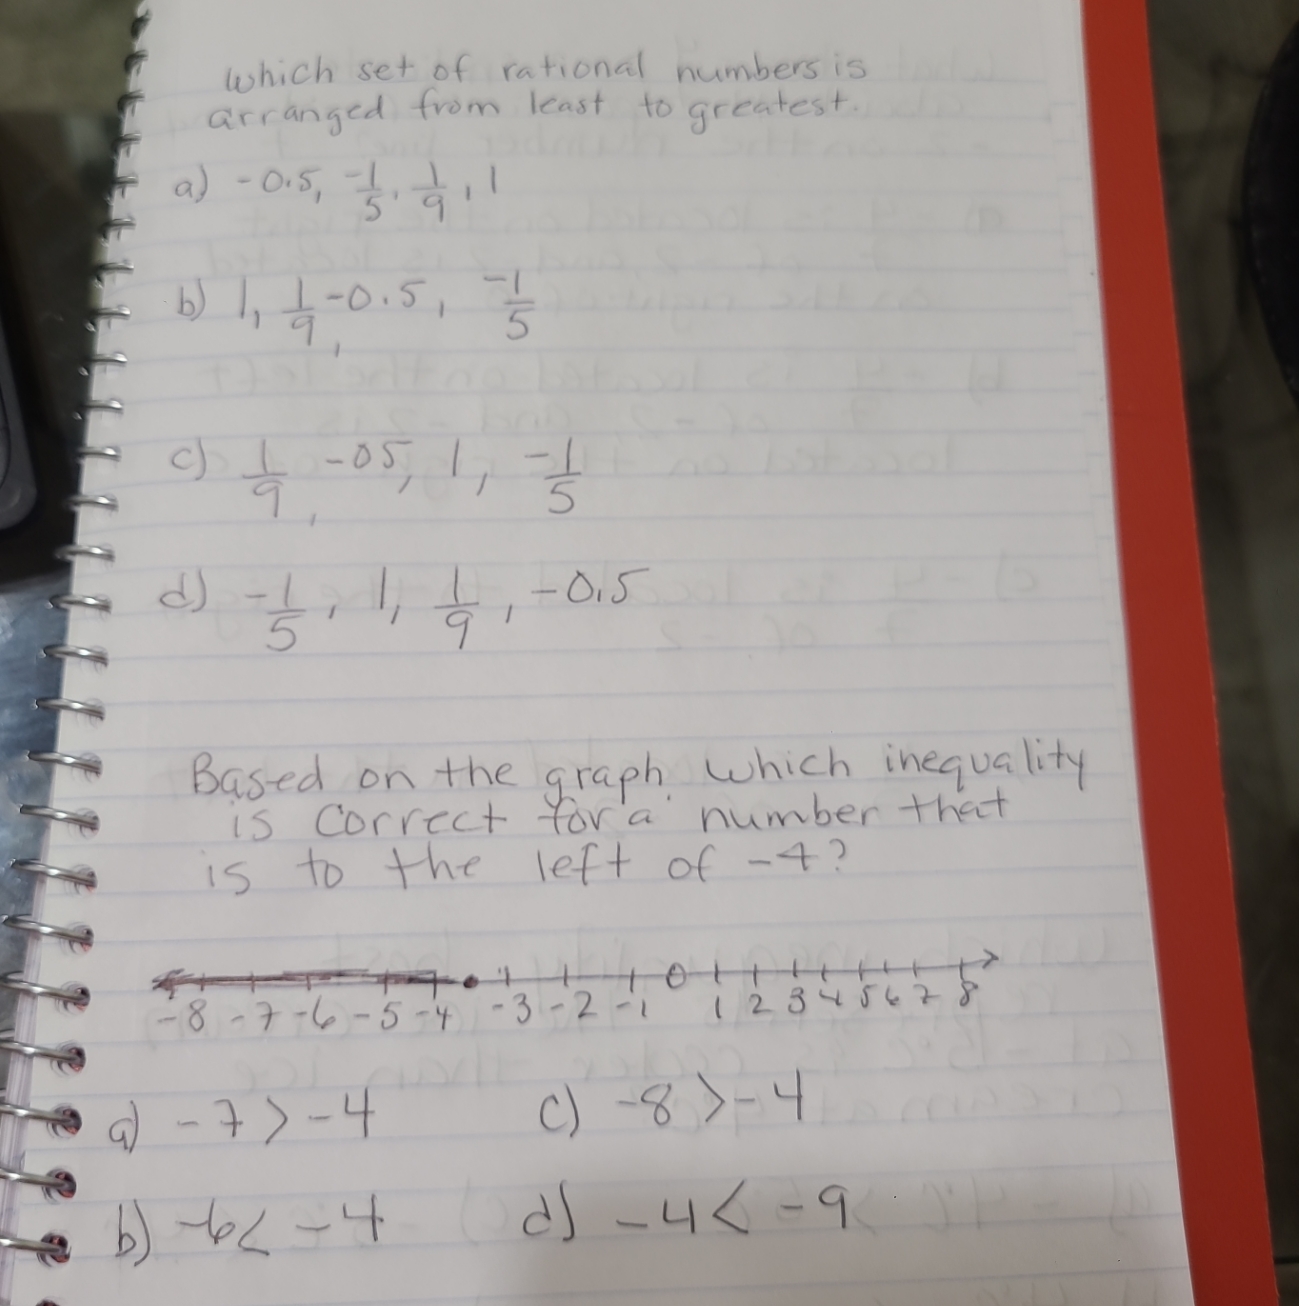 which set of rational numbers is
arranged from least to greatest.
a) -0.5, -1/5, 1/9, 1
b) 1, 1/9, -0.5, -1/5
c) 1/9, -05, 1, -1/5
d) -1/5, 1, 1/9, -0.5
Based on the graph which inequality
is correct for a number that
is to the left of -4?
-8 -7 -6 -5 -4 -3 -2 -1 0 1 2 3 4 5 6 7 8
a) -7 > -4 c) -8 > -4
b) -6 < -4 d) -4 < -9